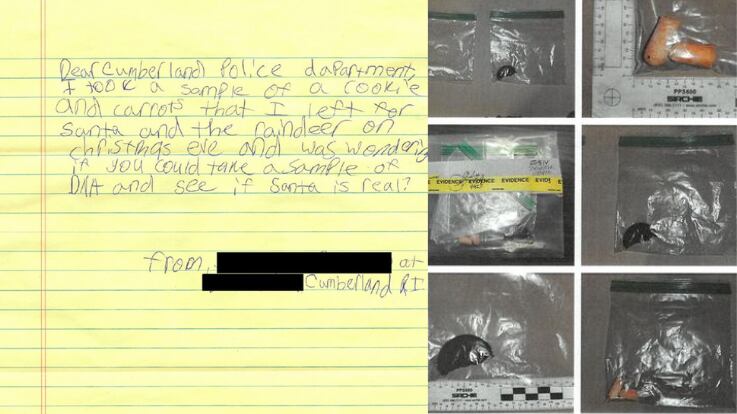 Dear Cumberland Police dapartment,
I took a sample of a cookie
and carrots that I left for
Santa and the raindeer on
christmgs eve and was wondering
if you could take a sample of
DNA and see if Santa is real?
from,
at
Cumberland RI
PPS600
SIRCHIE
EVIDENCE EVIDENCE EVIDE
PPS600
SIRCHIE